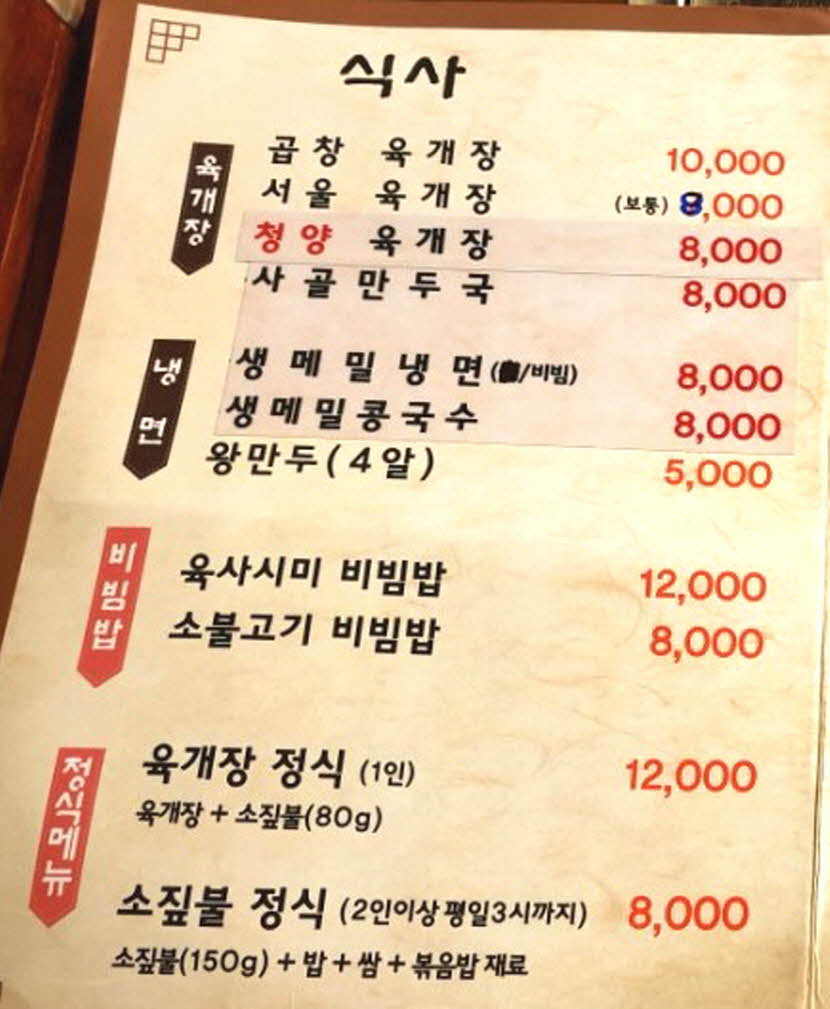 식사
육개장
곱창 육개장 10,000
서울 육개장 (보통) 8,000
청양 육개장 8,000
사골만두국 8,000
냉면
생메밀냉면 (/비빔) 8,000
생메밀콩국수 8,000
왕만두(4알) 5,000
비빔밥
육사시미 비빔밥 12,000
소불고기 비빔밥 8,000
정식메뉴
육개장 정식 (1인) 12,000
육개장 + 소짚불(80g)
소짚불 정식 (2인이상 평일3시까지) 8,000
소짚불(150g) + 밥 + 쌈 + 볶음밥 재료